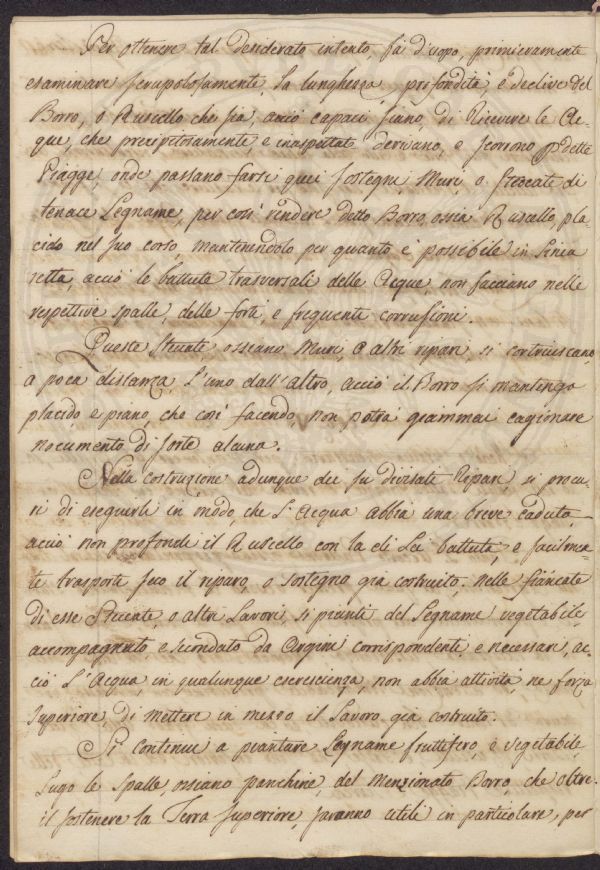 Per ottenere tal desiderato intento, fà d'uopo, primieramente
esaminare scrupolosamente, La lunghezza, profondità, e declive del
Borro, o Ruscello che sia, acciò capaci siano, di Ricevere le Ac-
que, che precipitosamente e inaspettate derivano, e scorrono p dette
Piagge, onde possano farsi quei sostegni Muri, o steccate di
tenace Legname, per così rendere detto Borro, ossia Ruscello, pla-
cido nel suo corso, mantenendolo per quanto è possibile in Linea
retta, acciò le battute trasversali delle Acque, non facciano nelle
respettive spalle, delle forti, e frequenti corrusioni.
Queste Steccate ossiano Muri, o altri ripari, si costruiscano,
a poca distanza, L'uno dall'altro, acciò il Borro si mantenga
placido, e piano, che così facendo, non potrà giammai cagionare
nocumento di sorte alcuna.
Nella costruzione adunque dei su divisati Ripari, si procu-
ri di eseguirli in modo, che L'Acqua abbia una breve caduta,
acciò non profondi il Ruscello con la di Lei battuta, e facilmen
te trasporti seco il riparo, o sostegno già costruito; nelle fiancate
di esse Steccate, o altri Lavori, si pianti del Legname vegetabile,
accompagnato, e secondato da Argini corrispondenti e necessari, ac-
ciò L'Acqua, in qualunque escrescienza, non abbia attività, ne forza
superiore, di mettere in mezzo il Lavoro già costruito.
Si continui a piantare Legname fruttifero, e vegetabile
Lugo le spalle, ossiano panchine del menzionato Borro, che oltre
il sostenere la Terra superiore, saranno utili in particolare, per